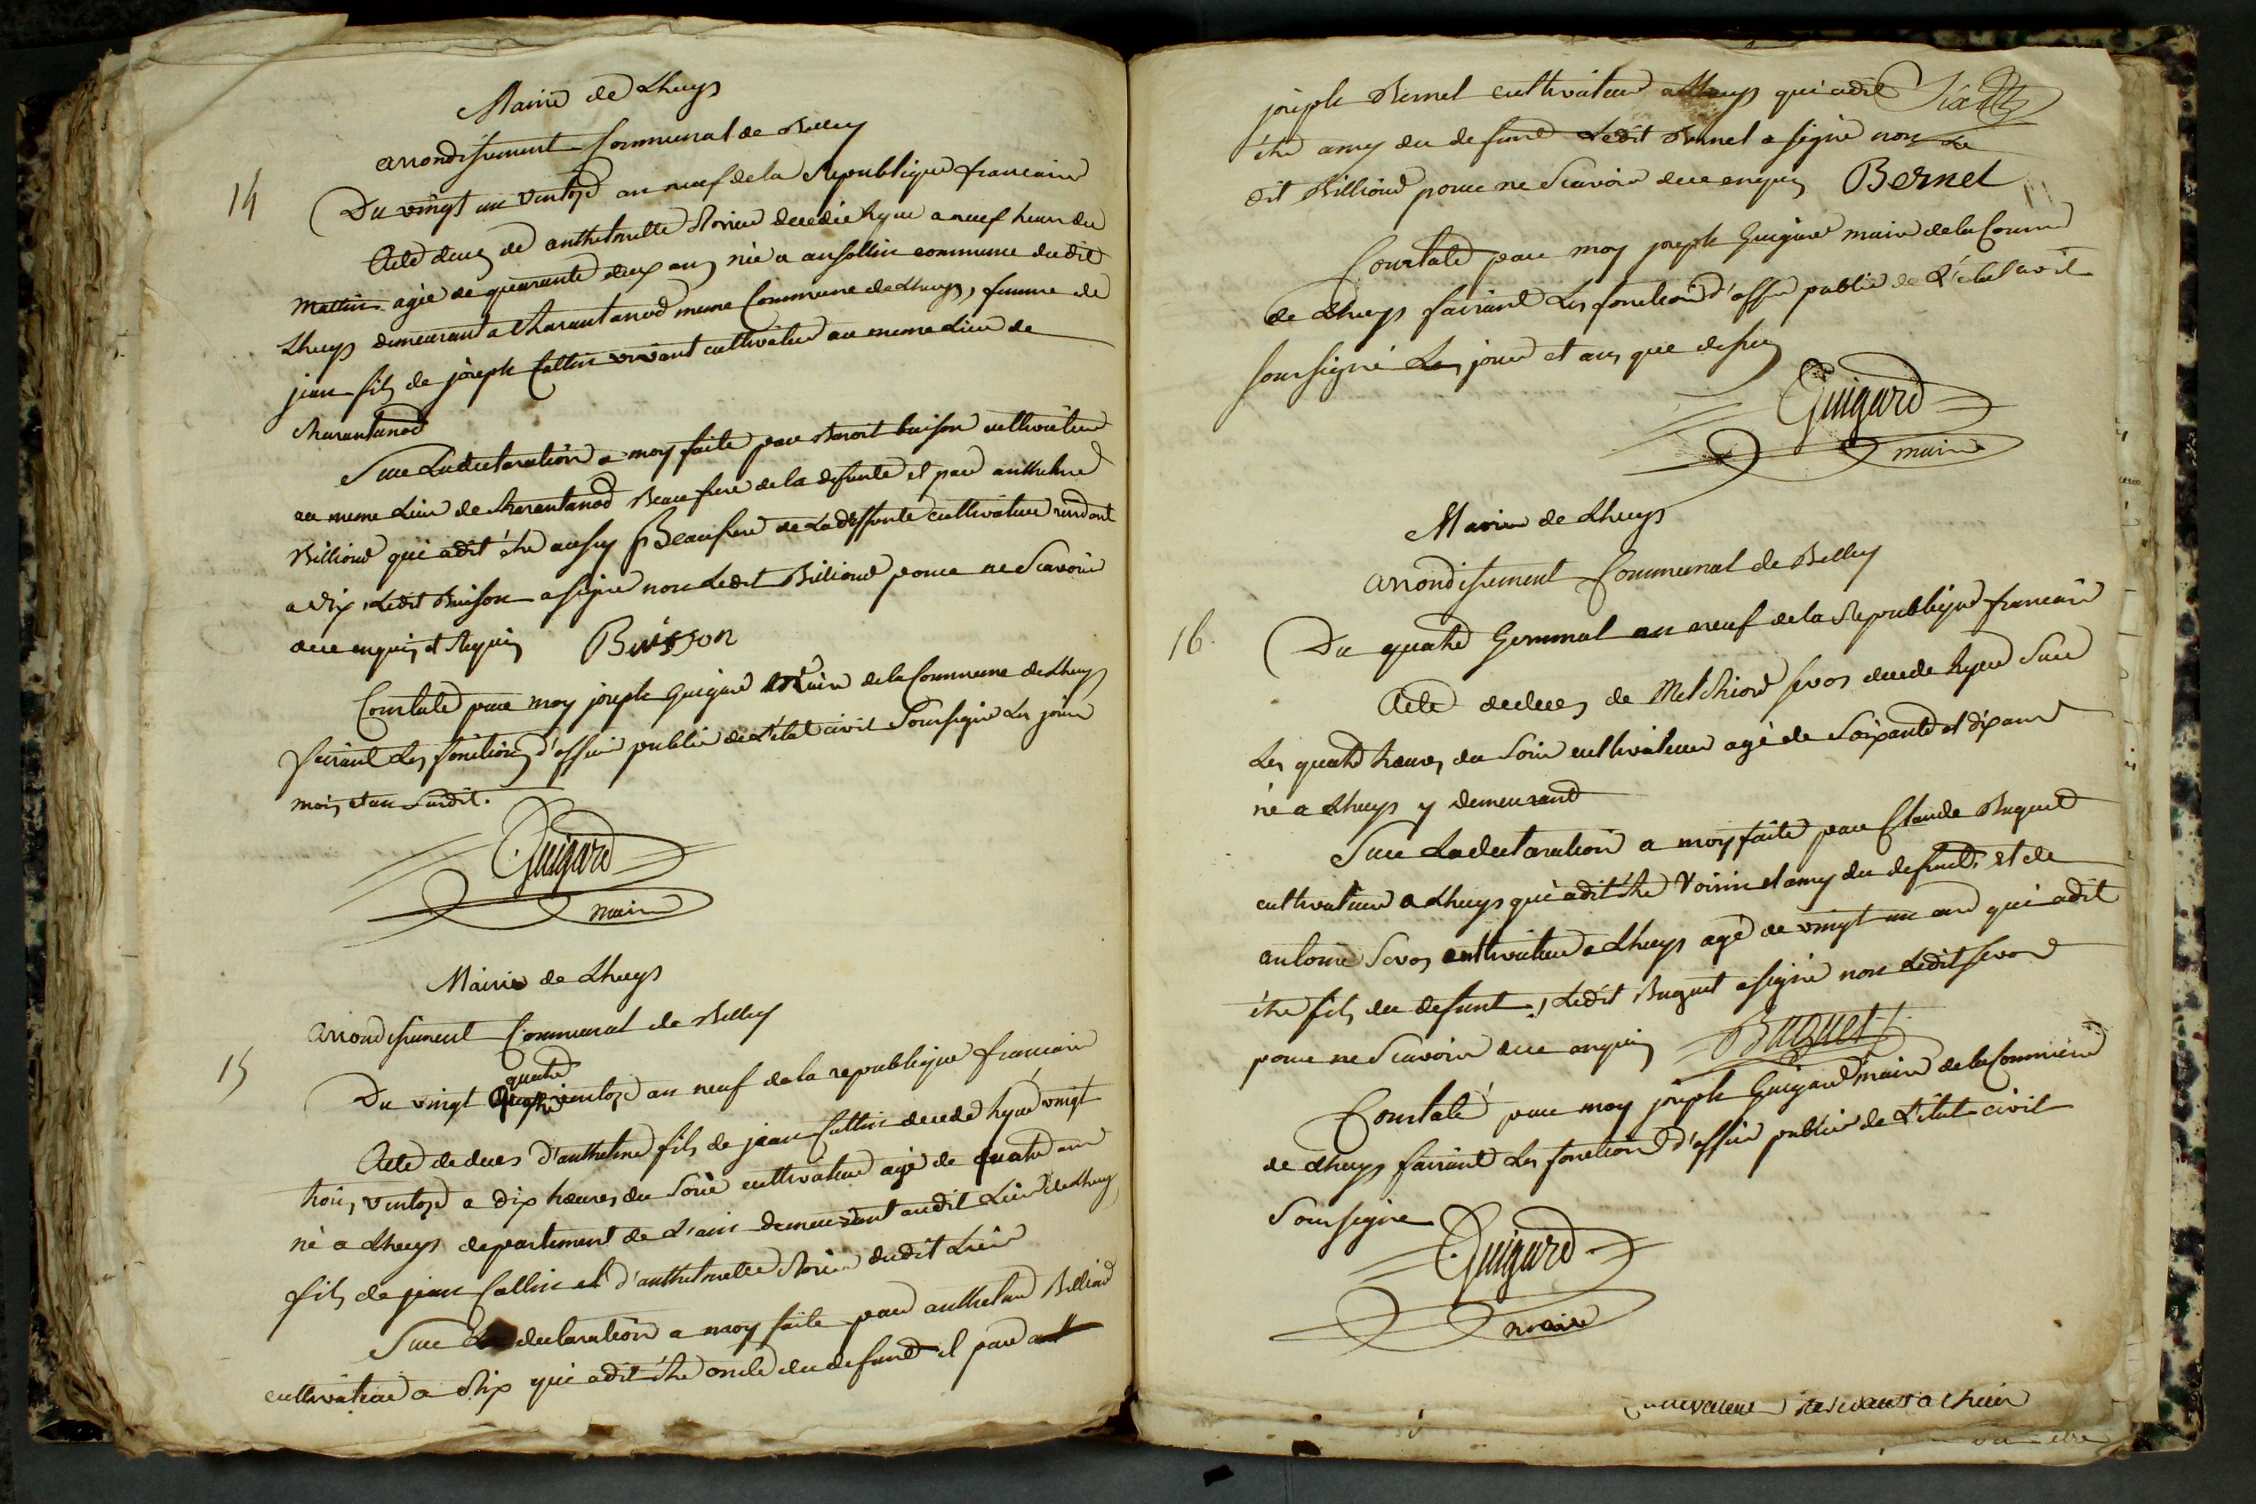 Mairie de Lhuys
arrondissement Communal de Belley
14
Du vingt un ventoze an neuf de la Republique francaise
Acte deces de anthelmette decedée hyer a neuf heures du
mattin agée de quarante deux ans née a ansollin commune dudit
Lhuys demeurant a Charantanod meme Commune de Lhuys, femme de
jean fils de joseph Callin vivant cultivateur au meme Lieu de
Charantanod
Sur La declaration a moy faite par Benoit buison cultivateur
au meme Lieu de Charantanod Beau frere de la defunte et par anthelme
Billioud qui a dit être aussy Beaufrere de La deffunte cultivateur residant
a Rix, Ledit Buison a signé non Ledit Billioud pour ne Scavoir
de ce enquis et Requis Buisson
Constaté par moy joseph Guigard maire de la Commune de Lhuys
faisant Les fonctions d'officier public de L'état civil Soussigné Les jour
mois et an Susdit.
Guigard
maire
Mairie de Lhuys
arrondissement Communal de Belley
15
quatre
Du vingt ventoze an neuf de la republique francaise
Acte de deces d'anthelme fils de jean Callin decedé hyer vingt
trois ventoze a dix heures du Soir cultivateur agé de quatre ans
né a Lhuys departement de L'ain demeurant audit Lieu de Lhuys
fils de jean Callin et d'anthelmette dudit Lieu
Sur La declaration a moy faite par anthelme Billioud
cultivateur a Rix qui a dit être oncle du defunt et par
joseph Bernet cultivateur a Lhuys qui a dit
être amy du defunt Ledit Bernet a signé non Le
dit Billioud pour ne Scavoir de ce enquis Bernet
Constaté par moy joseph Guigard maire de la Commune
de Lhuys faisant Les fonctions d'officier public de L'état civil
soussigné Les jour et an que dessus
Guigard
maire
Mairie de Lhuys
arrondissement Communal de Belley
16.
Du quatre Germinal an neuf de la Republique francaise
Acte de deces de Melchiord Sevoz decedé hyer Sur
Les quatre heures du Soir cultivateur agé de Soixante et dix ans
né a Lhuys y demeurant
Sur La declaration a moy faite par Claude Buquet
cultivateur a Lhuys qui a dit être Voisin et amy du defunt, et de
antoine Sevoz cultivateur a Lhuys agé de vingt un ans qui a dit
être fils du defunt, Ledit Buquet a signé non Ledit Sevoz
pour ne Scavoir de ce enquis Buquet
Constaté par moy joseph Guigard maire de la Commune
de Lhuys faisant Les fonctions d'officier public de L'état civil
Soussigné
Guigard
maire